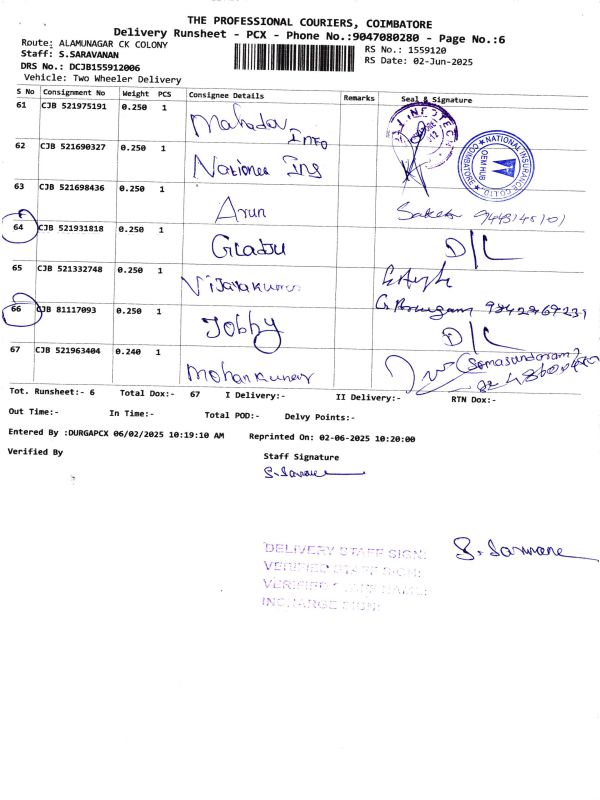 THE PROFESSIONAL COURIERS, COIMBATORE
Delivery Runsheet - PCX - Phone No.:9047080280 - Page No.:6
Route: ALAMUNAGAR CK COLONY
RS No.: 1559120
Staff: S.SARAVANAN
RS Date: 02-Jun-2025
DRS No.: DCJB155912006
Vehicle: Two Wheeler Delivery
S No Consignment No Weight PCS Consignee Details Remarks Seal & Signature
61 CJB 521975191 0.250 1 Mahadev Info
62 CJB 521690327 0.250 1 National Ins
NATIONAL INSURANCE CO. LTD. COIMBATORE OEM HUB
63 CJB 521698436 0.250 1 Arun
64 CJB 521931818 0.250 1 D/L
65 CJB 521332748 0.250 1 Vijayakumar
66 CJB 81117093 0.250 1 Jobby D/L
67 CJB 521963404 0.240 1 Mohankumar (Somasundaram)
Tot. Runsheet:- 6 Total Dox:- 67 I Delivery:- II Delivery:- RTN Dox:-
Out Time:- In Time:- Total POD:- Delvy Points:-
Entered By :DURGAPCX 06/02/2025 10:19:10 AM Reprinted On: 02-06-2025 10:20:00
Verified By
Staff Signature
DELIVERY STAFF SIGN:
VERIFIED STAFF SIGN:
VERIFIED STAFF NAME:
INCHARGE SIGN: